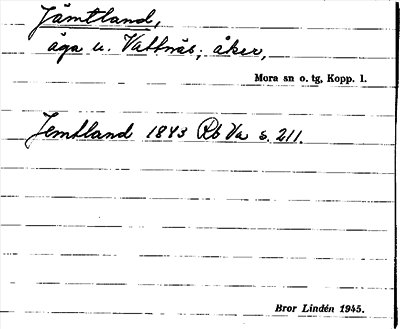 Jämtland,
äga u. Vattnäs; åker,
Mora sn o. tg, Kopp. l.
Jemtland 1843 Rb Va s. 211.
Bror Lindén 1945.